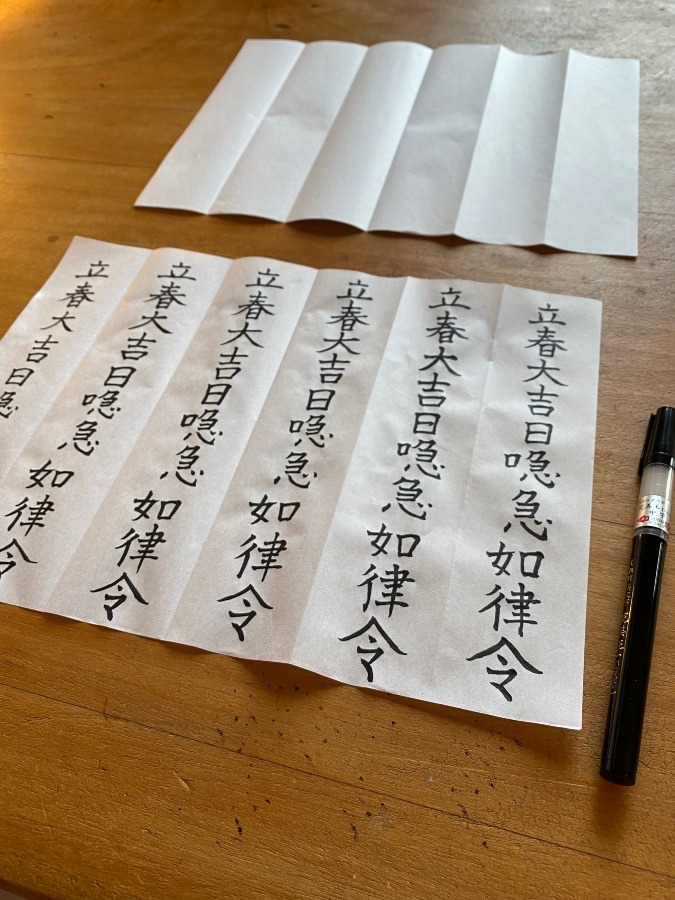 立春大吉日喼急如律令
立春大吉日喼急如律令
立春大吉日喼急如律令
立春大吉日喼急如律令
立春大吉日喼急如律令
立春大吉日